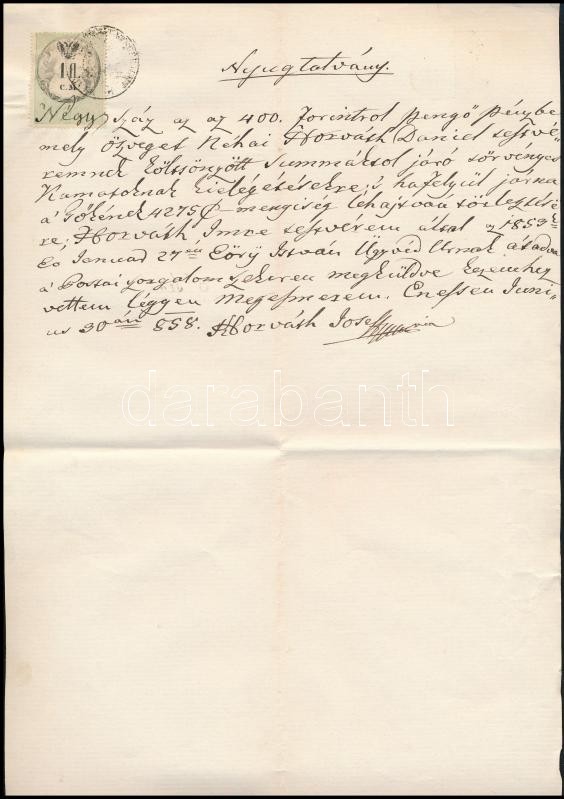 1 fl.
C. M.
Nyugtatvány.
Négy száz az az 400. forintrol pengő pénzbe
mely öszveget Néhai Horváth Daniel testvé„
remnek kölcsönzött summátol járó törvényes
Kamatoknak kielégétésekre; 's ha felyül járna
a' Tőkének 4275 mennyiség lehajtván törlesztésé
re; Horváth Imre testvérem által 1853
Januar 27én Eöry István Ügyvéd Urnak átadva
a Postai szekeren megküldve kezemhez
vettem légyen megesmerem. Enessen Juni„
us 30án 858. Horváth Josef
darabanth